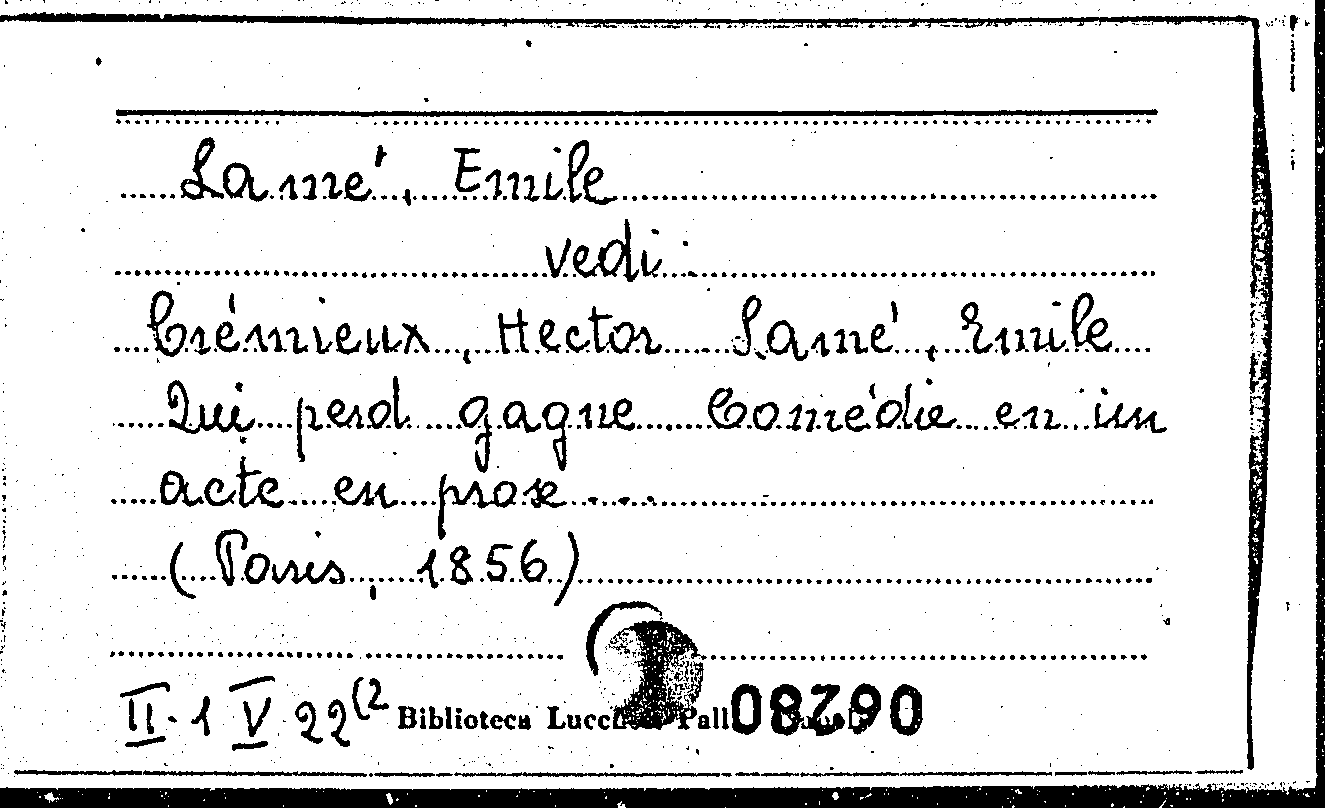 Lamé, Emile
vedi:
Crémieux, Hector Lamé, Emile
Qui perd gagne Comédie en un
acte en prose...
(Paris, 1856)
II. 1 V 22(2
Biblioteca 08290